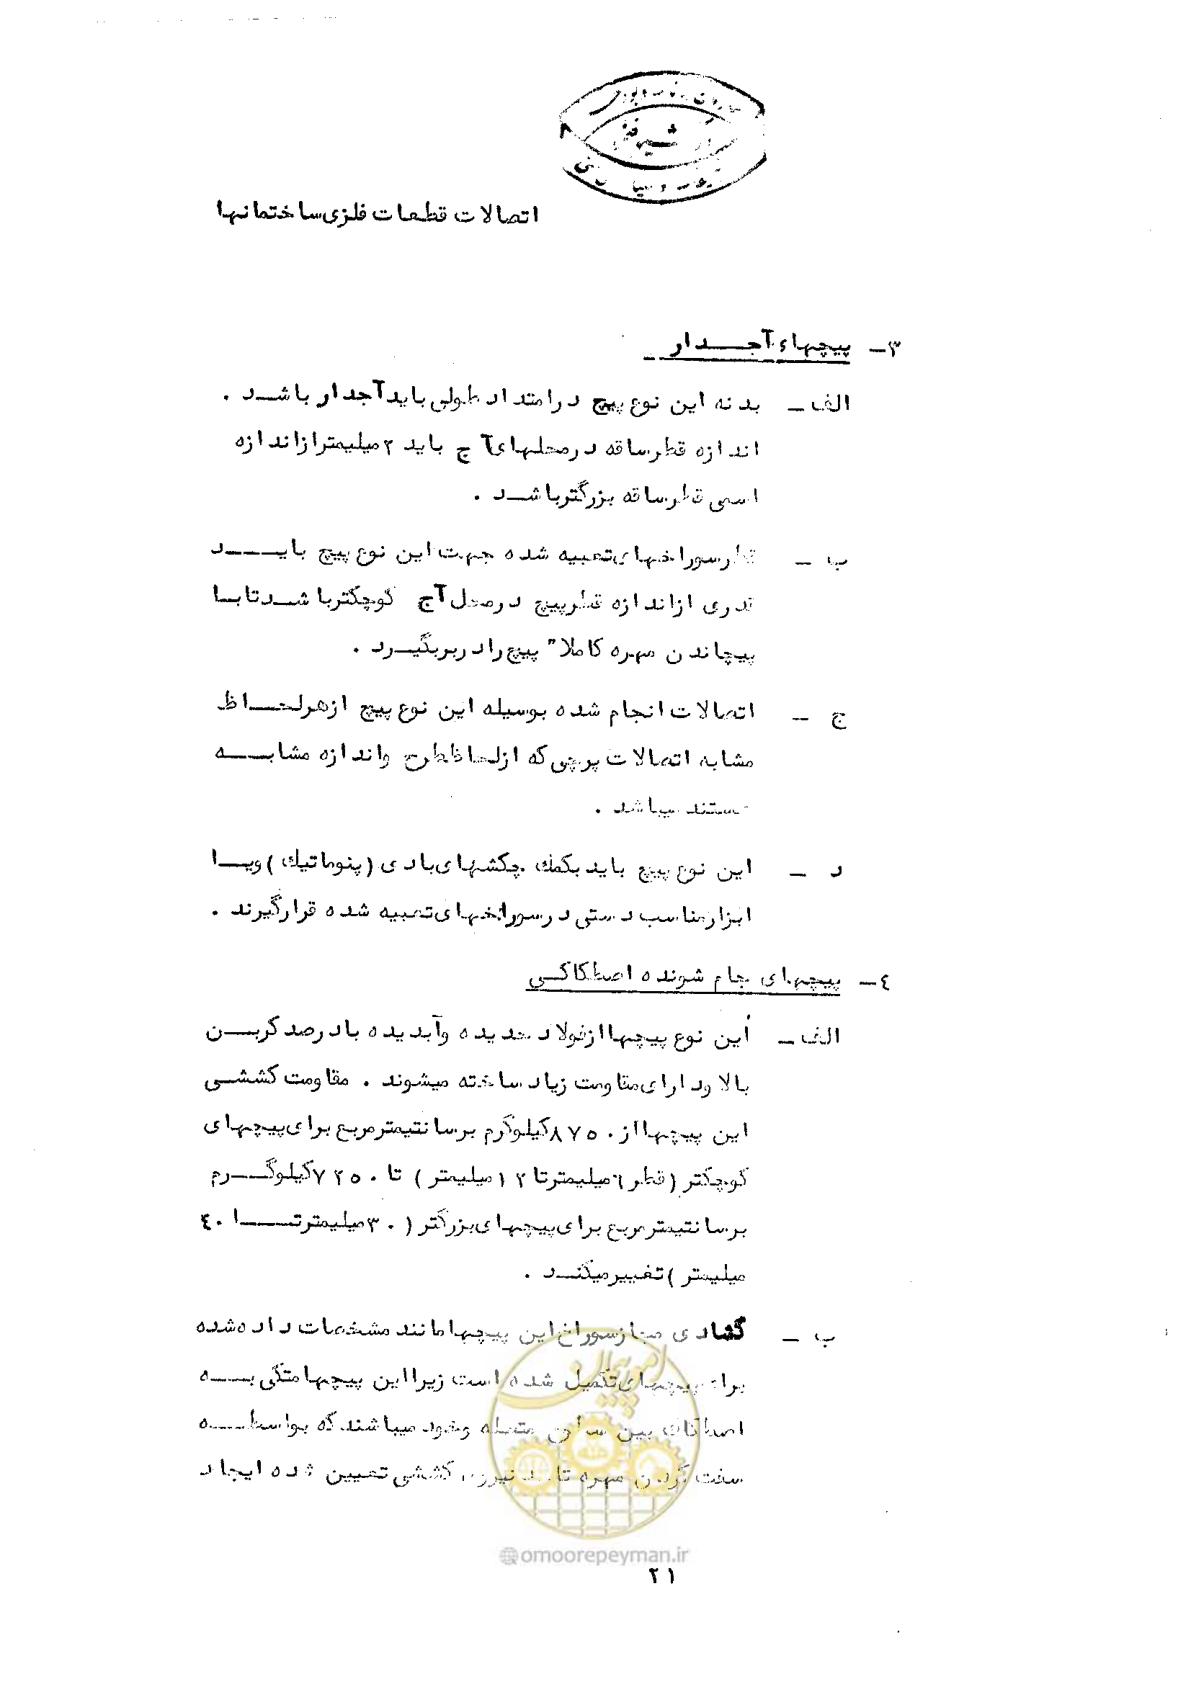 اتصالات قطعات فلزی ساختمانها
۳- پیچهای آجدار
الف - بدنه این نوع پیچ در امتداد طولی باید آجدار باشد .
اندازه قطر ساقه در محلهای آج باید ۲ میلیمتر از اندازه
اسمی قطر ساقه بزرگتر باشد .
ب - قطر سوراخهای تعبیه شده جهت این نوع پیچ باید
قدری از اندازه قطر پیچ در محل آج کوچکتر باشد تا با
پیچاندن مهره کاملا" پیچ را در بر بگیرد .
ج - اتصالات انجام شده بوسیله این نوع پیچ از هر لحاظ
مشابه اتصالات پرچی که از لحاظ طرح و اندازه مشابه
هستند میباشد .
د - این نوع پیچ باید بکمک چکشهای بادی (پنوماتیک) و یا
ابزار مناسب دستی در سوراخهای تعبیه شده قرار گیرند .
٤- پیچهای جام شونده اصطکاکی
الف - این نوع پیچها از فولاد حدیده و آبدیده با درصد کربن
بالا و دارای مقاومت زیاد ساخته میشوند . مقاومت کششی
این پیچها از ۸۷۵۰ کیلوگرم بر سانتیمتر مربع برای پیچهای
کوچکتر (قطر ۶ میلیمتر تا ۱۲ میلیمتر) تا ۷۲۵۰ کیلوگرم
بر سانتیمتر مربع برای پیچهای بزرگتر (۳۰ میلیمتر تا ٤۰
میلیمتر) تغییر میکند .
ب - گشادی مجاز سوراخ این پیچها مانند مشخصات داده شده
برای پیچهای تکمیل شده است زیرا این پیچها متکی به
اصطکاک بین سطوح متصله وجود میباشند که بواسطه
سفت کردن مهره تا حد نیروی کششی تعیین شده ایجاد
امور پیمان
@omoorepeyman.ir
۲۱